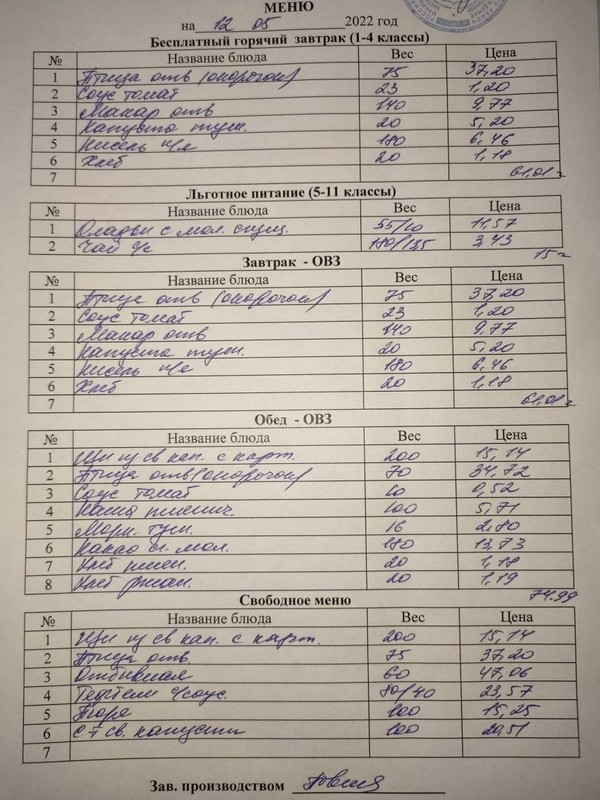 МЕНЮ
на 12 05 2022 год
Бесплатный горячий завтрак (1-4 классы)
№ Название блюда Вес Цена
1 Птица отв (окорочок) 75 37,20
2 Соус томат 23 1,20
3 Макар отв 140 9,77
4 Капуста туш. 20 5,20
5 Кисель 180 6,46
6 Хлеб 20 1,18
7 61,01
Льготное питание (5-11 классы)
№ Название блюда Вес Цена
1 Оладьи с мол. сгущ. 55/10 11,57
2 Чай 180/13,5 3,43
15
Завтрак - ОВЗ
№ Название блюда Вес Цена
1 Птица отв (окорочок) 75 37,20
2 Соус томат 23 1,20
3 Макар отв 140 9,77
4 Капуста туш. 20 5,20
5 Кисель 180 6,46
6 Хлеб 20 1,18
7 61,01
Обед - ОВЗ
№ Название блюда Вес Цена
1 Щи из св кап. с карт. 200 15,14
2 Птица отв (окорочок) 70 34,72
3 Соус томат 10 0,52
4 Каша пшенич. 100 5,71
5 Морк. туш. 16 2,80
6 Какао с мол. 180 13,73
7 Хлеб пшен. 20 1,18
8 Хлеб ржан. 20 1,19
74.99
Свободное меню
№ Название блюда Вес Цена
1 Щи из св кап. с карт. 200 15,14
2 Птица отв. 75 37,20
3 Отбивная 60 47,06
4 Тефтели с/соус. 80/40 23,57
5 Пюре 100 15,25
6 С-т св. капусты 100 20,51
7
Зав. производством